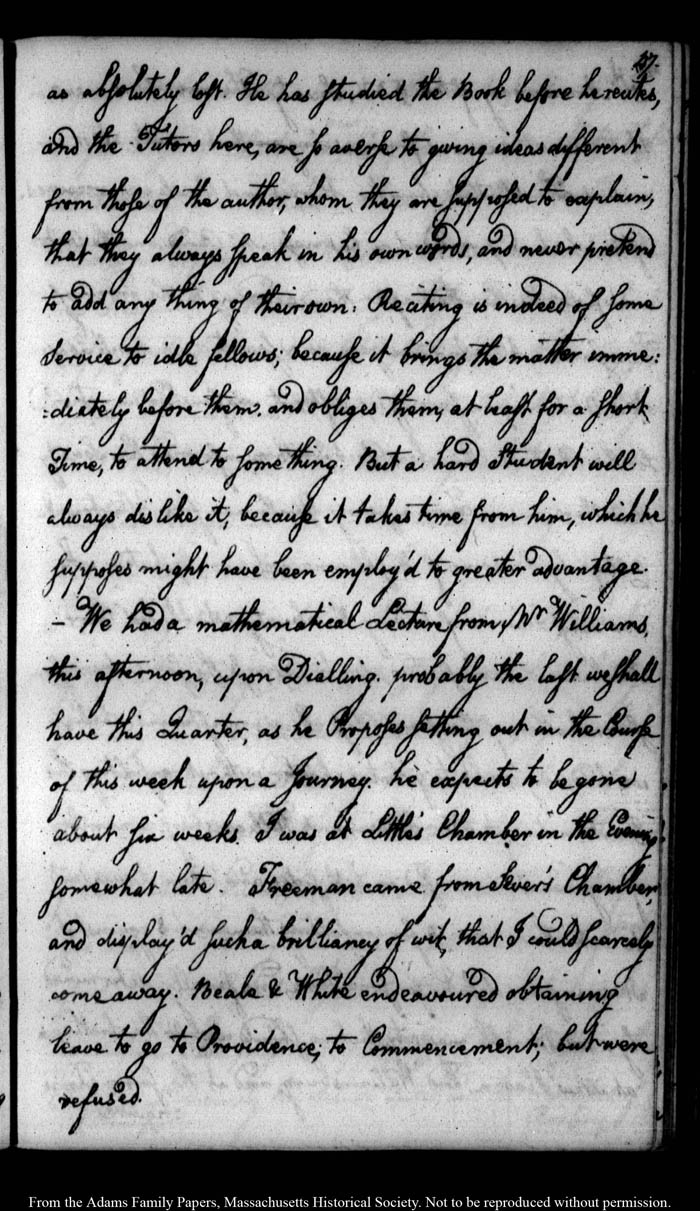 27.
as absolutely lost. He has studied the Book before he recites,
and the Tutors here, are so averse to giving ideas different
from those of the author, whom they are supposed to explain,
that they always speak in his own words, and never pretend
to add any thing of their own: Reciting is indeed of some
service to idle fellows; because it brings the matter imme:
:diately before them, and obliges them, at least for a short
Time, to attend to something. But a hard Student will
always dislike it, because it takes time from him, which he
supposes might have been employ'd to greater advantage.
— We had a mathematical Lecture from, Mr Williams,
this afternoon, upon Dialling. probably the last we shall
have this Quarter, as he Proposes setting out in the Course
of this week upon a Journey. he expects to be gone
about six weeks. I was at Little's Chamber in the Evening
somewhat late. Freeman came from Sever's Chamber,
and display'd such a brilliancy of wit, that I could scarcely
come away. Beale & White endeavoured obtaining
leave to go to Providence; to Commencement; but were
refused.
From the Adams Family Papers, Massachusetts Historical Society. Not to be reproduced without permission.